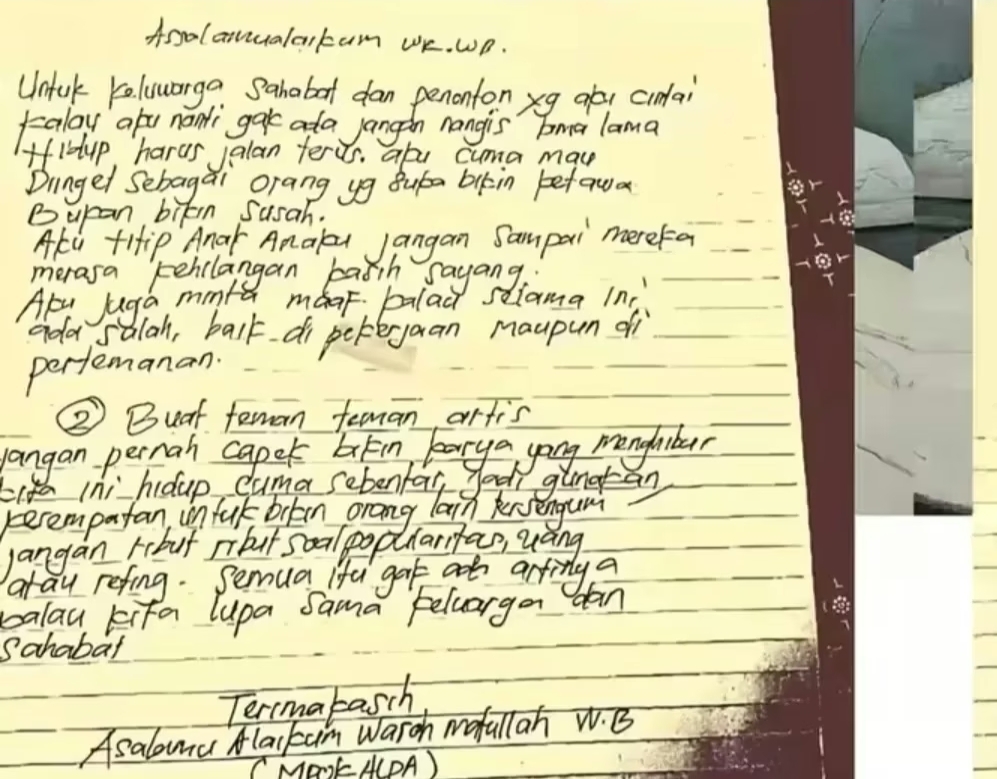 Assalamualaikum wr.wb.
Untuk keluwarga sahabat dan penonton yg aku cintai
kalau aku nanti gak ada jangan nangis lama lama
Hidup harus jalan terus. aku cuma mau
Diinget sebagai orang yg suka bikin ketawa
Bukan bikin susah.
Aku titip Anak Anaku jangan sampai mereka
merasa kehilangan kasih sayang.
Aku juga minta maaf kalau selama ini
ada salah, baik di pekerjaan maupun di
pertemanan.
② Buat teman teman artis
jangan pernah capek bikin karya yang menghibur
kita ini hidup cuma sebentar, jadi gunakan
kesempatan untuk bikin orang lain tersenyum
jangan ribut ribut soal popularitas, uang
atau reting. Semua itu gak ada artinya
kalau kita lupa sama keluarga dan
sahabat
Terimakasih
Asalamu Alaikum Warah matullah W.B
(MPOK ALPA)